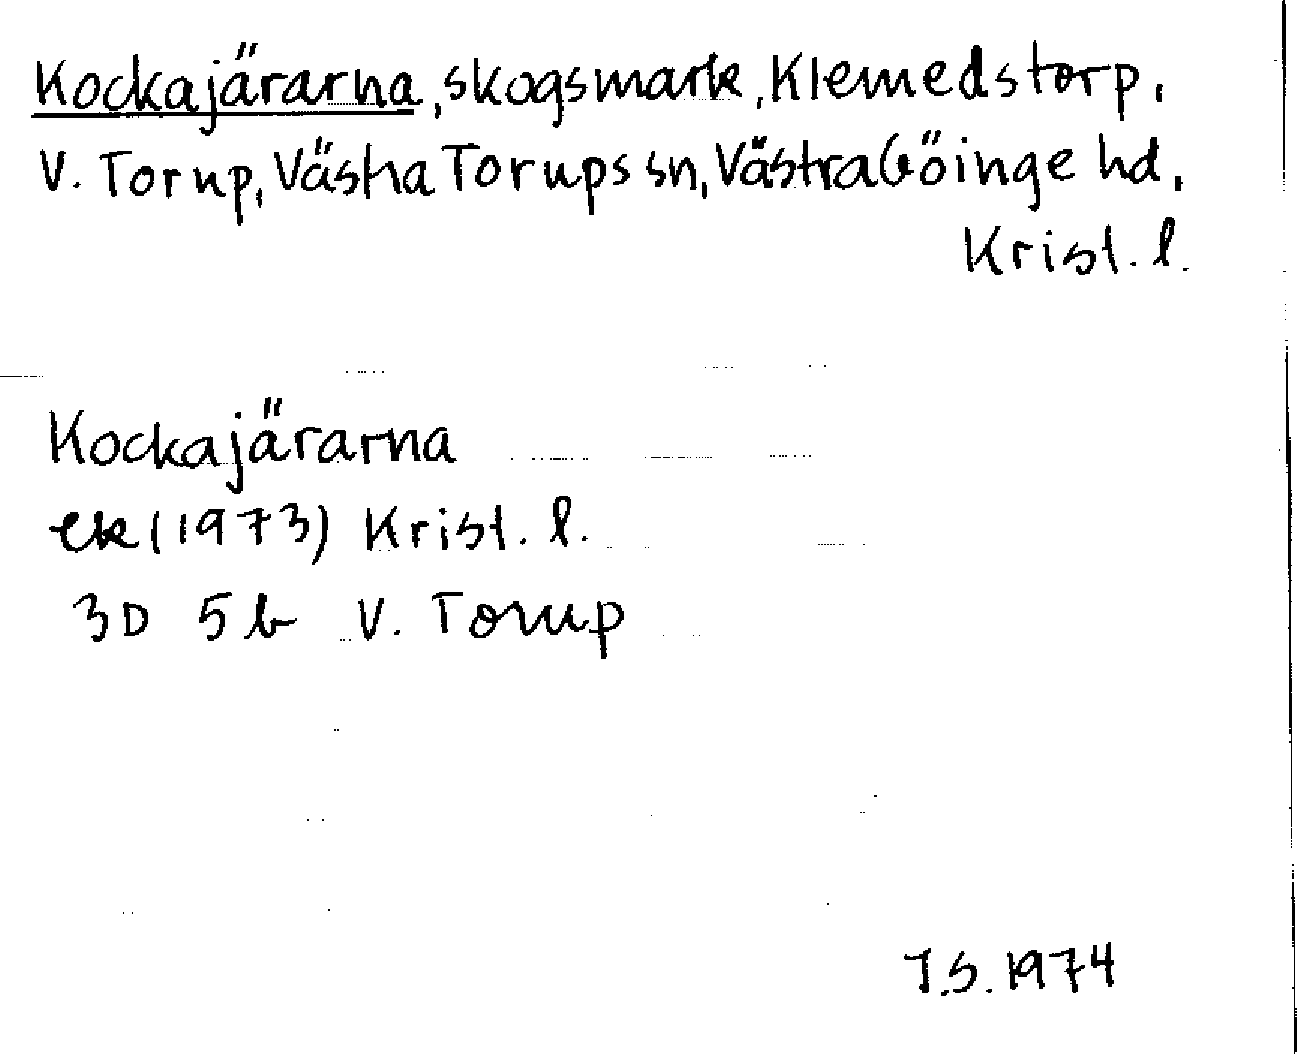 Kockajärarna, skogsmark, Klemedstorp,
V. Torup, Västra Torups sn, Västra Göinge hd,
Krist. l.
Kockajärarna
ek (1973) Krist. l.
3D 5b V. Torup
I.S. 1974